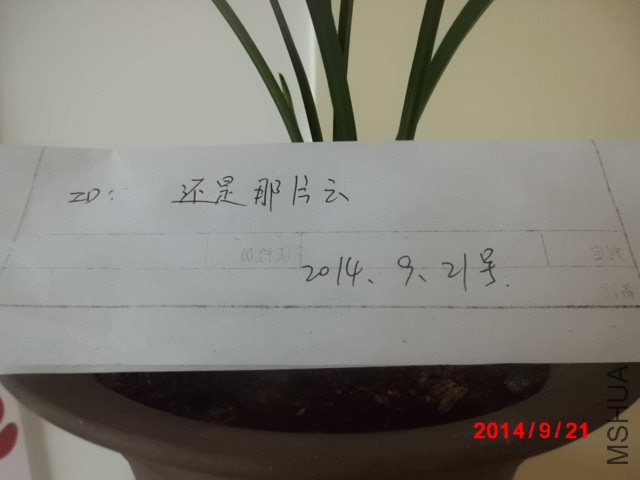 ID: 还是那片云
2014、9、21号.
2014/9/21
MSHUA